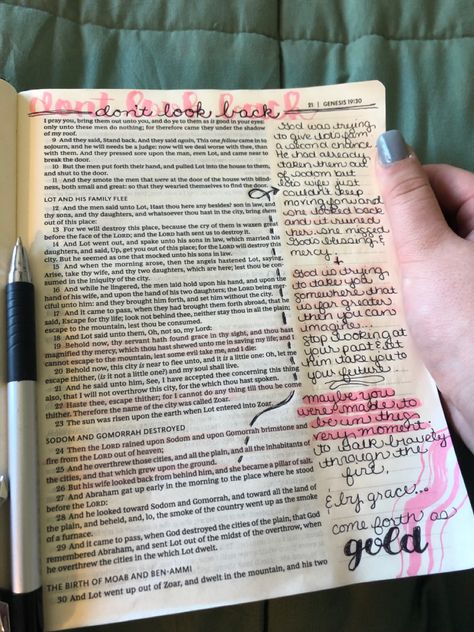 don't look back
don't look back
21 | GENESIS 19:30
I pray you, bring them out unto you, and do ye to them as is good in your eyes:
only unto these men do nothing; for therefore came they under the shadow
of my roof.
9 And they said, Stand back. And they said again, This one fellow came in to
sojourn, and he will needs be a judge: now will we deal worse with thee, than
with them. And they pressed sore upon the man, even Lot, and came near to
break the door.
10 But the men put forth their hand, and pulled Lot into the house to them,
and shut to the door.
11 And they smote the men that were at the door of the house with blind-
ness, both small and great: so that they wearied themselves to find the door.
LOT AND HIS FAMILY FLEE
12 And the men said unto Lot, Hast thou here any besides? son in law, and
thy sons, and thy daughters, and whatsoever thou hast in the city, bring them
out of this place:
13 For we will destroy this place, because the cry of them is waxen great
before the face of the LORD; and the LORD hath sent us to destroy it.
14 And Lot went out, and spake unto his sons in law, which married his
daughters, and said, Up, get you out of this place; for the LORD will destroy this
city. But he seemed as one that mocked unto his sons in law.
15 And when the morning arose, then the angels hastened Lot, saying,
Arise, take thy wife, and thy two daughters, which are here; lest thou be con-
sumed in the iniquity of the city.
16 And while he lingered, the men laid hold upon his hand, and upon the
hand of his wife, and upon the hand of his two daughters; the LORD being mer-
ciful unto him: and they brought him forth, and set him without the city.
17 And it came to pass, when they had brought them forth abroad, that he
said, Escape for thy life; look not behind thee, neither stay thou in all the plain;
escape to the mountain, lest thou be consumed.
18 And Lot said unto them, Oh, not so, my Lord:
19 Behold now, thy servant hath found grace in thy sight, and thou hast
magnified thy mercy, which thou hast shewed unto me in saving my life; and I
cannot escape to the mountain, lest some evil take me, and I die:
20 Behold now, this city is near to flee unto, and it is a little one: Oh, let me
escape thither, (is it not a little one?) and my soul shall live.
21 And he said unto him, See, I have accepted thee concerning this thing
also, that I will not overthrow this city, for the which thou hast spoken.
22 Haste thee, escape thither; for I cannot do any thing till thou be come
thither. Therefore the name of the city was called Zoar.
23 The sun was risen upon the earth when Lot entered into Zoar.
SODOM AND GOMORRAH DESTROYED
24 Then the LORD rained upon Sodom and upon Gomorrah brimstone and
fire from the LORD out of heaven;
25 And he overthrew those cities, and all the plain, and all the inhabitants of
the cities, and that which grew upon the ground.
26 But his wife looked back from behind him, and she became a pillar of salt.
27 And Abraham gat up early in the morning to the place where he stood
before the LORD:
28 And he looked toward Sodom and Gomorrah, and toward all the land of
the plain, and beheld, and, lo, the smoke of the country went up as the smoke
of a furnace.
29 And it came to pass, when God destroyed the cities of the plain, that God
remembered Abraham, and sent Lot out of the midst of the overthrow, when
he overthrew the cities in the which Lot dwelt.
THE BIRTH OF MOAB AND BEN-AMMI
30 And Lot went up out of Zoar, and dwelt in the mountain, and his two
God was trying
to give lot's fam
a second chance
He had already
taken them out
of sodom but
lots wife just
couldn't keep
moving forward
she looked back
and it ruined
her. she missed
Gods blessing &
mercy.
+
God is trying
to take you
somewhere that
is far greater
then you can
imagine...
stop looking at
your past & let
him take you to
your future...
maybe you
were made to
be in this
very moment.
to walk bravely
through the
fire,
& by grace...
come forth as
gold